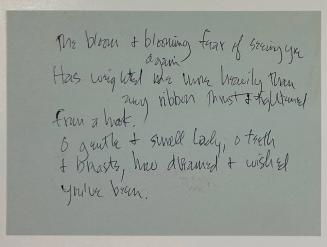 The bloom & blooming fear of seeing you
again
Has weighted me more heavily than
any ribbon thrust & tightened
From a
O gentle & small Lady, o teeth
& breasts, how dreamed & wished
you've been.